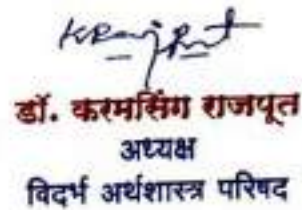 डॉ. करमसिंग राजपूत
अध्यक्ष
विदर्भ अर्थशास्त्र परिषद